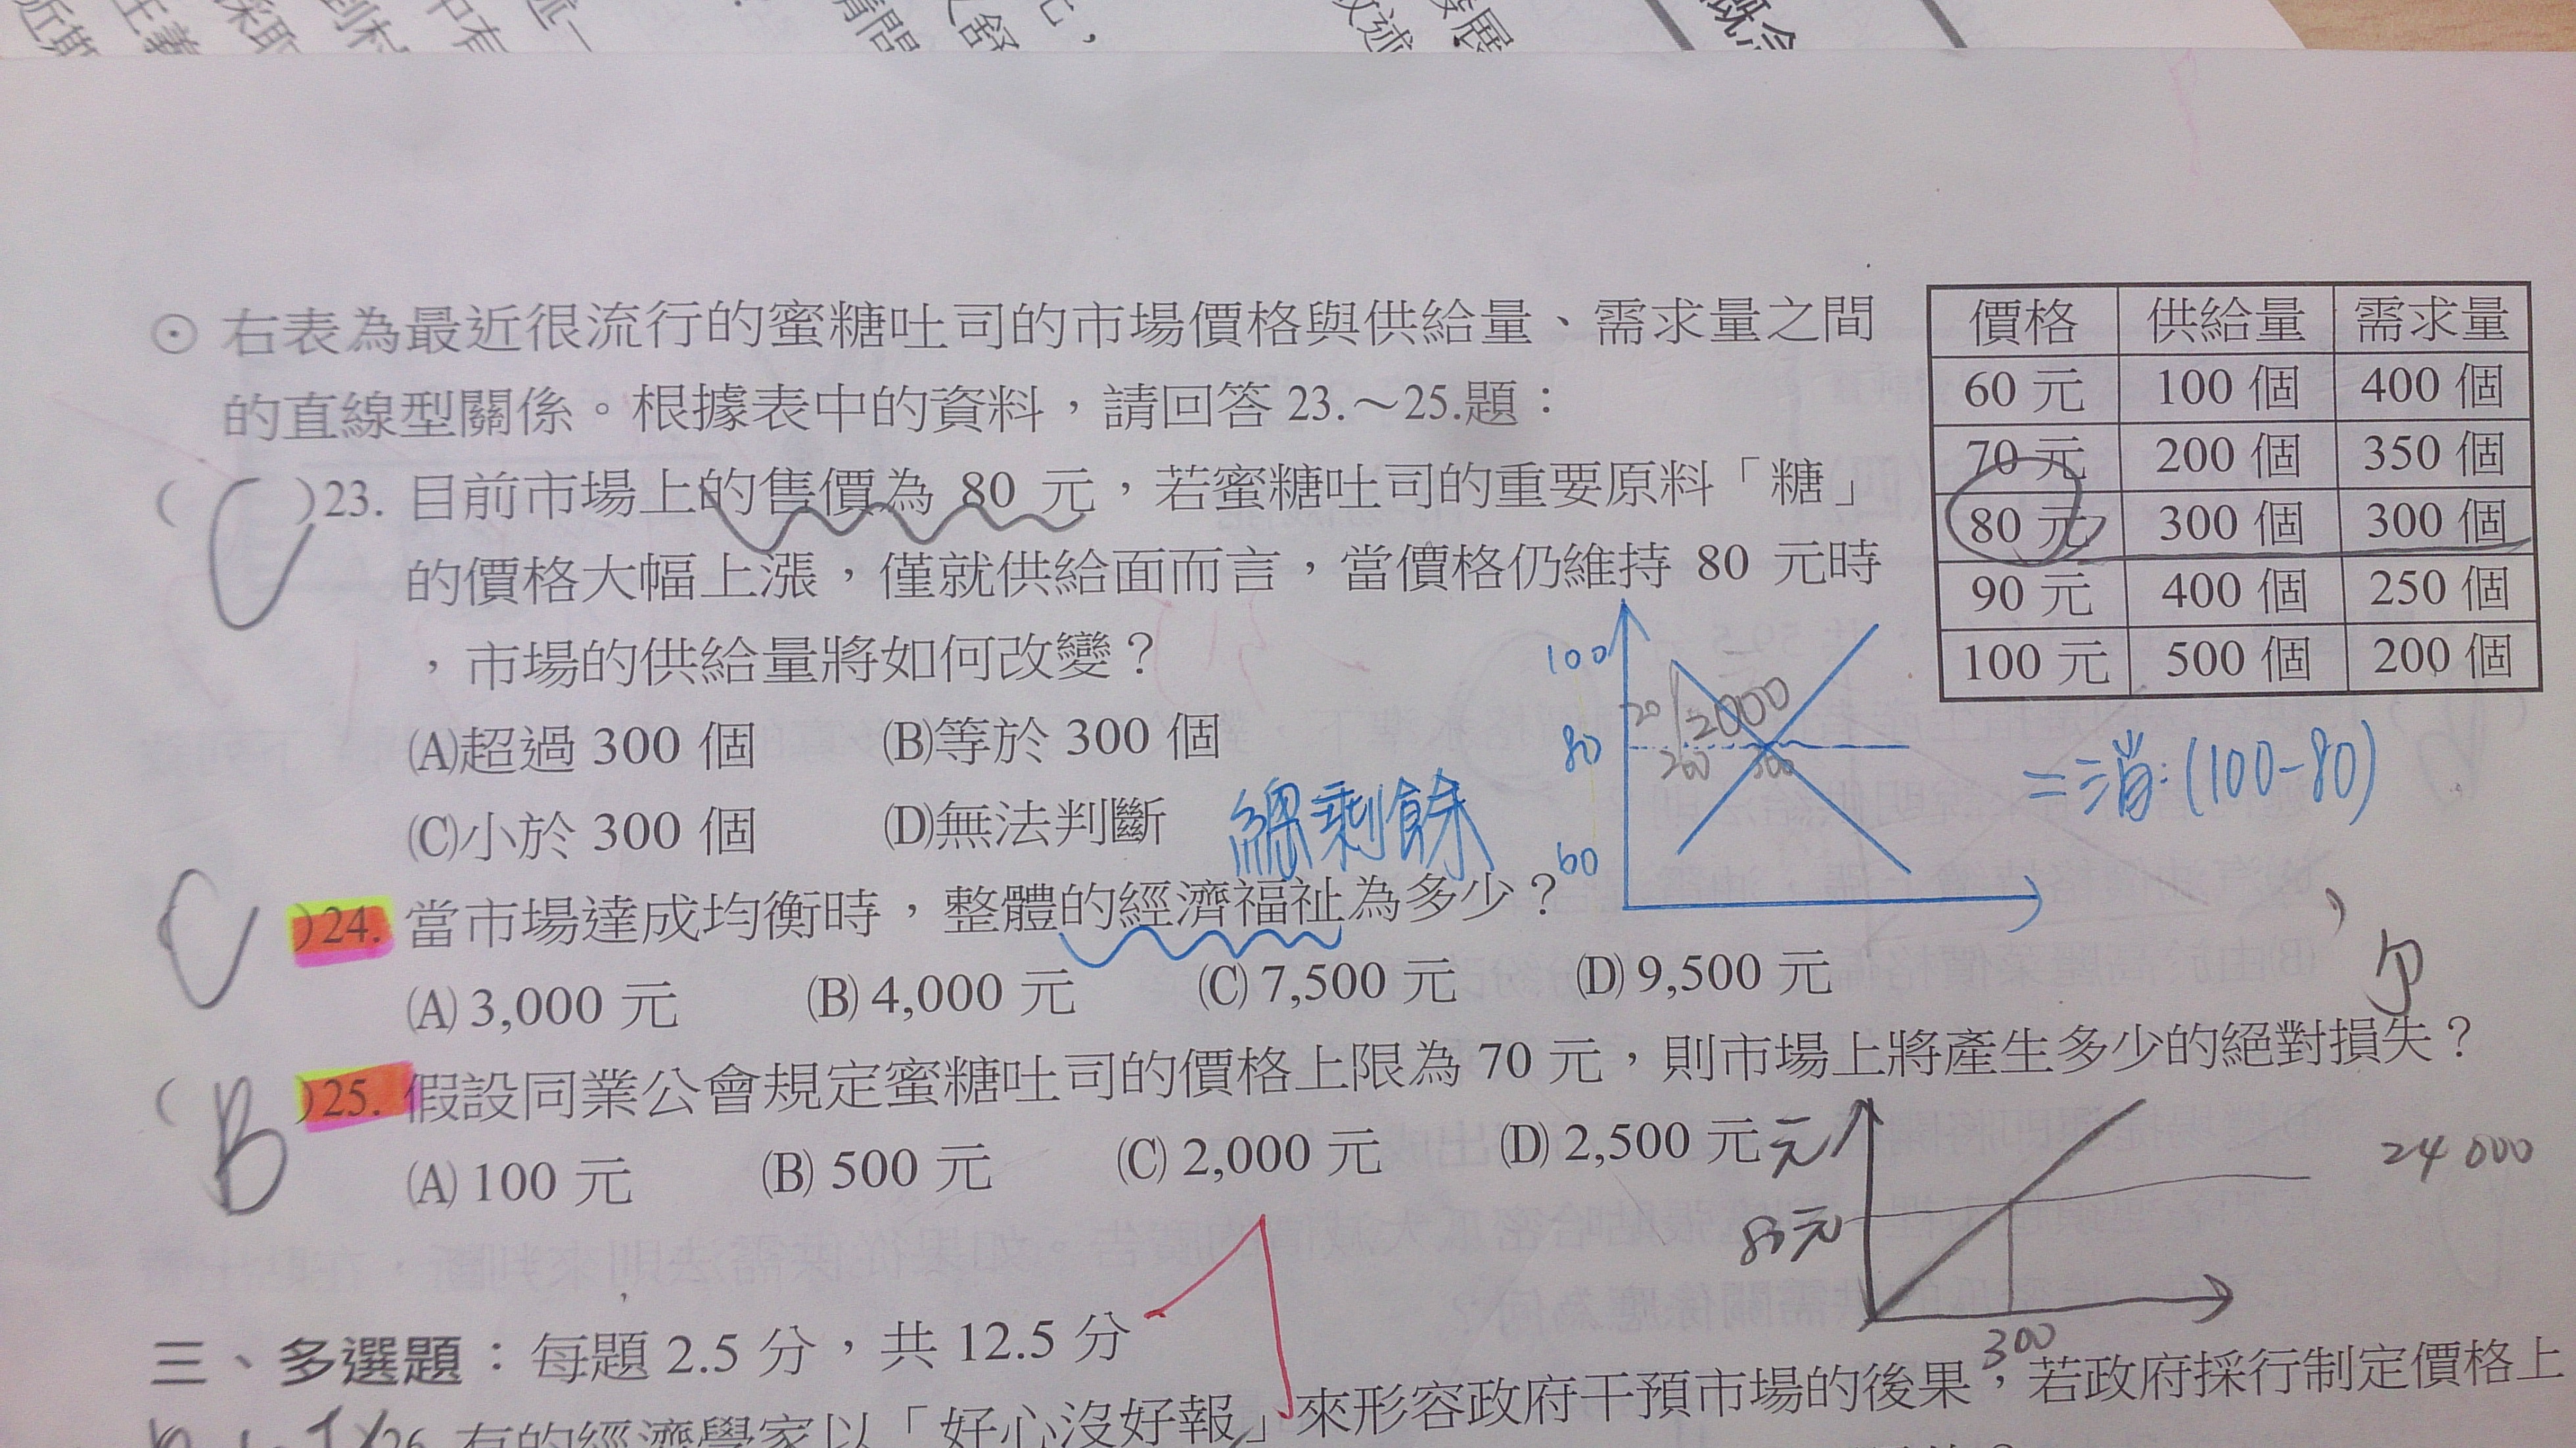 近斯
採取
中有
請問
敘述
發展
概念
⊙ 右表為最近很流行的蜜糖吐司的市場價格與供給量、需求量之間
的直線型關係。根據表中的資料，請回答 23.～25.題：
價格 供給量 需求量
60 元 100 個 400 個
70 元 200 個 350 個
80 元 300 個 300 個
90 元 400 個 250 個
100 元 500 個 200 個
( C )23. 目前市場上的售價為 80 元，若蜜糖吐司的重要原料「糖」
的價格大幅上漲，僅就供給面而言，當價格仍維持 80 元時
，市場的供給量將如何改變？
(A)超過 300 個 (B)等於 300 個
(C)小於 300 個 (D)無法判斷
100
20 2000
80 200 300
60
=消:(100-80)
總剩餘
C )24. 當市場達成均衡時，整體的經濟福祉為多少？
(A) 3,000 元 (B) 4,000 元 (C) 7,500 元 (D) 9,500 元
( B )25. 假設同業公會規定蜜糖吐司的價格上限為 70 元，則市場上將產生多少的絕對損失？
(A) 100 元 (B) 500 元 (C) 2,000 元 (D) 2,500 元
元
80元
300
24000
三、多選題：每題 2.5 分，共 12.5 分
26. 有的經濟學家以「好心沒好報」來形容政府干預市場的後果，若政府採行制定價格上